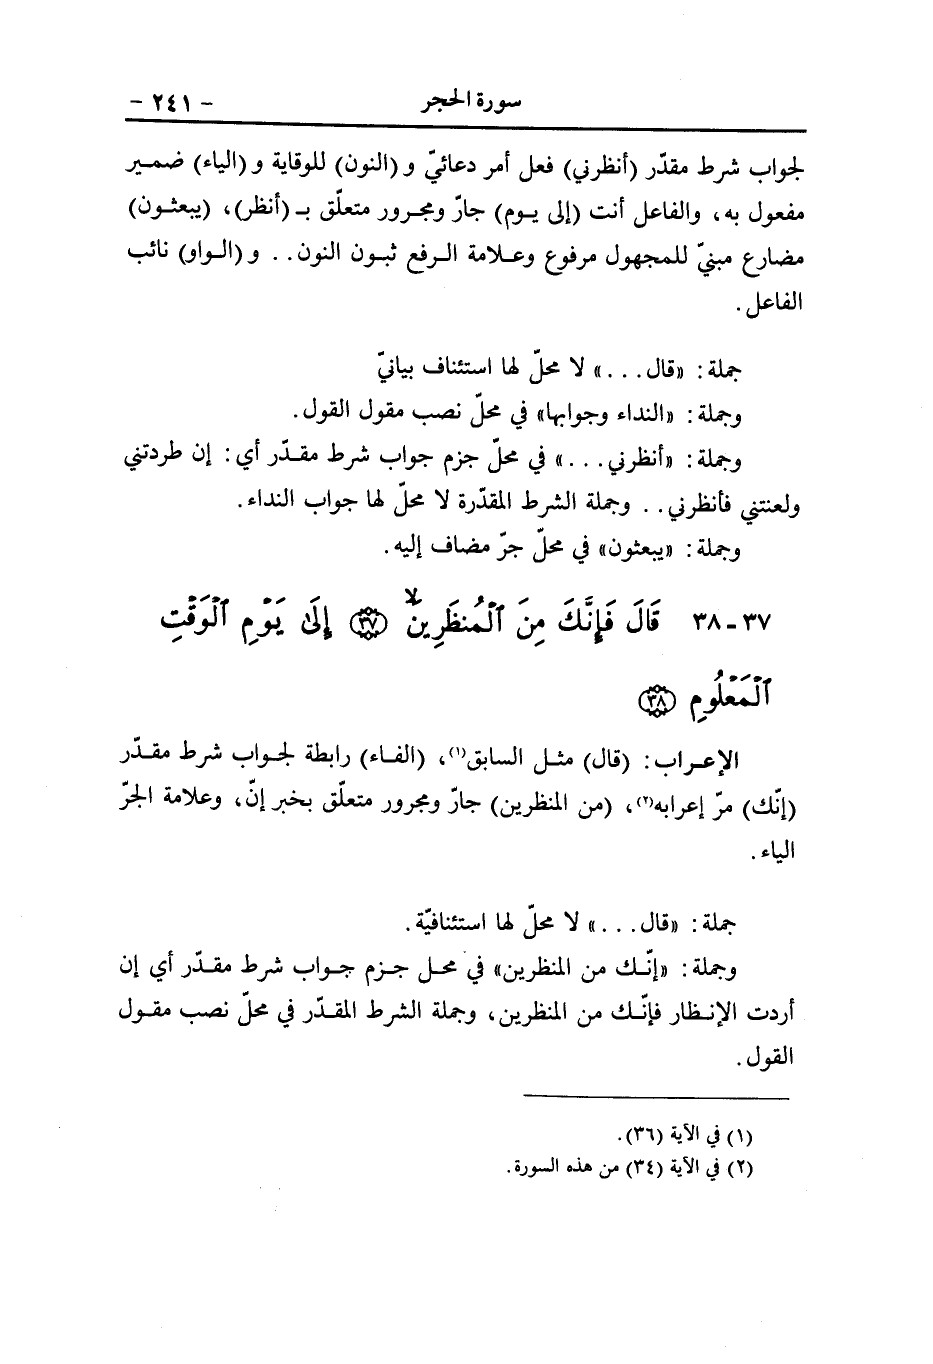 سورة الحجر - ٢٤١ -
لجواب شرط مقدّر (أنظرني) فعل أمر دعائيّ و (النون) للوقاية و (الياء) ضمير
مفعول به، والفاعل أنت (إلى يوم) جارّ ومجرور متعلّق بـ (أنظر)، (يبعثون)
مضارع مبنيّ للمجهول مرفوع وعلامة الرفع ثبون النون.. و (الواو) نائب
الفاعل.
جملة: «قال...» لا محلّ لها استئناف بيانيّ
وجملة: «النداء وجوابها» في محلّ نصب مقول القول.
وجملة: «أنظرني...» في محلّ جزم جواب شرط مقدّر أي: إن طردتني
ولعنتني فأنظرني.. وجملة الشرط المقدّرة لا محلّ لها جواب النداء.
وجملة: «يبعثون» في محلّ جرّ مضاف إليه.
٣٧-٣٨ قَالَ فَإِنَّكَ مِنَ ٱلْمُنظَرِينَ ۙ ﴿٣٧﴾ إِلَىٰ يَوْمِ ٱلْوَقْتِ
ٱلْمَعْلُومِ ﴿٣٨﴾
الإعراب: (قال) مثل السابق(١)، (الفاء) رابطة لجواب شرط مقدّر
(إنّك) مرّ إعرابه(٢)، (من المنظرين) جارّ ومجرور متعلّق بخبر إنّ، وعلامة الجرّ
الياء.
جملة: «قال...» لا محلّ لها استئنافيّة.
وجملة: «إنّك من المنظرين» في محل جزم جواب شرط مقدّر أي إن
أردت الإنظار فإنّك من المنظرين، وجملة الشرط المقدّر في محلّ نصب مقول
القول.
(١) في الآية (٣٦).
(٢) في الآية (٣٤) من هذه السورة.